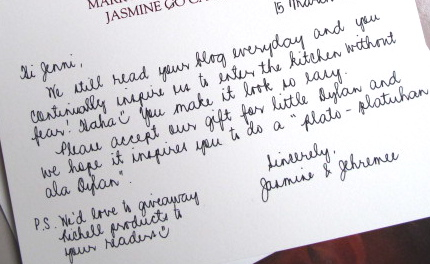 JASMINE GO
15 March
Hi Jenni,
We still read your blog everyday and you
continually inspire us to enter the kitchen without
fear! Haha! You make it look so easy.
Please accept our gift for little Dylan and
we hope it inspires you to do a "plato-platuhan
ala Dylan".
Sincerely,
Jasmine & Jehremee
P.S. We'd love to giveaway
Richell products to
your readers